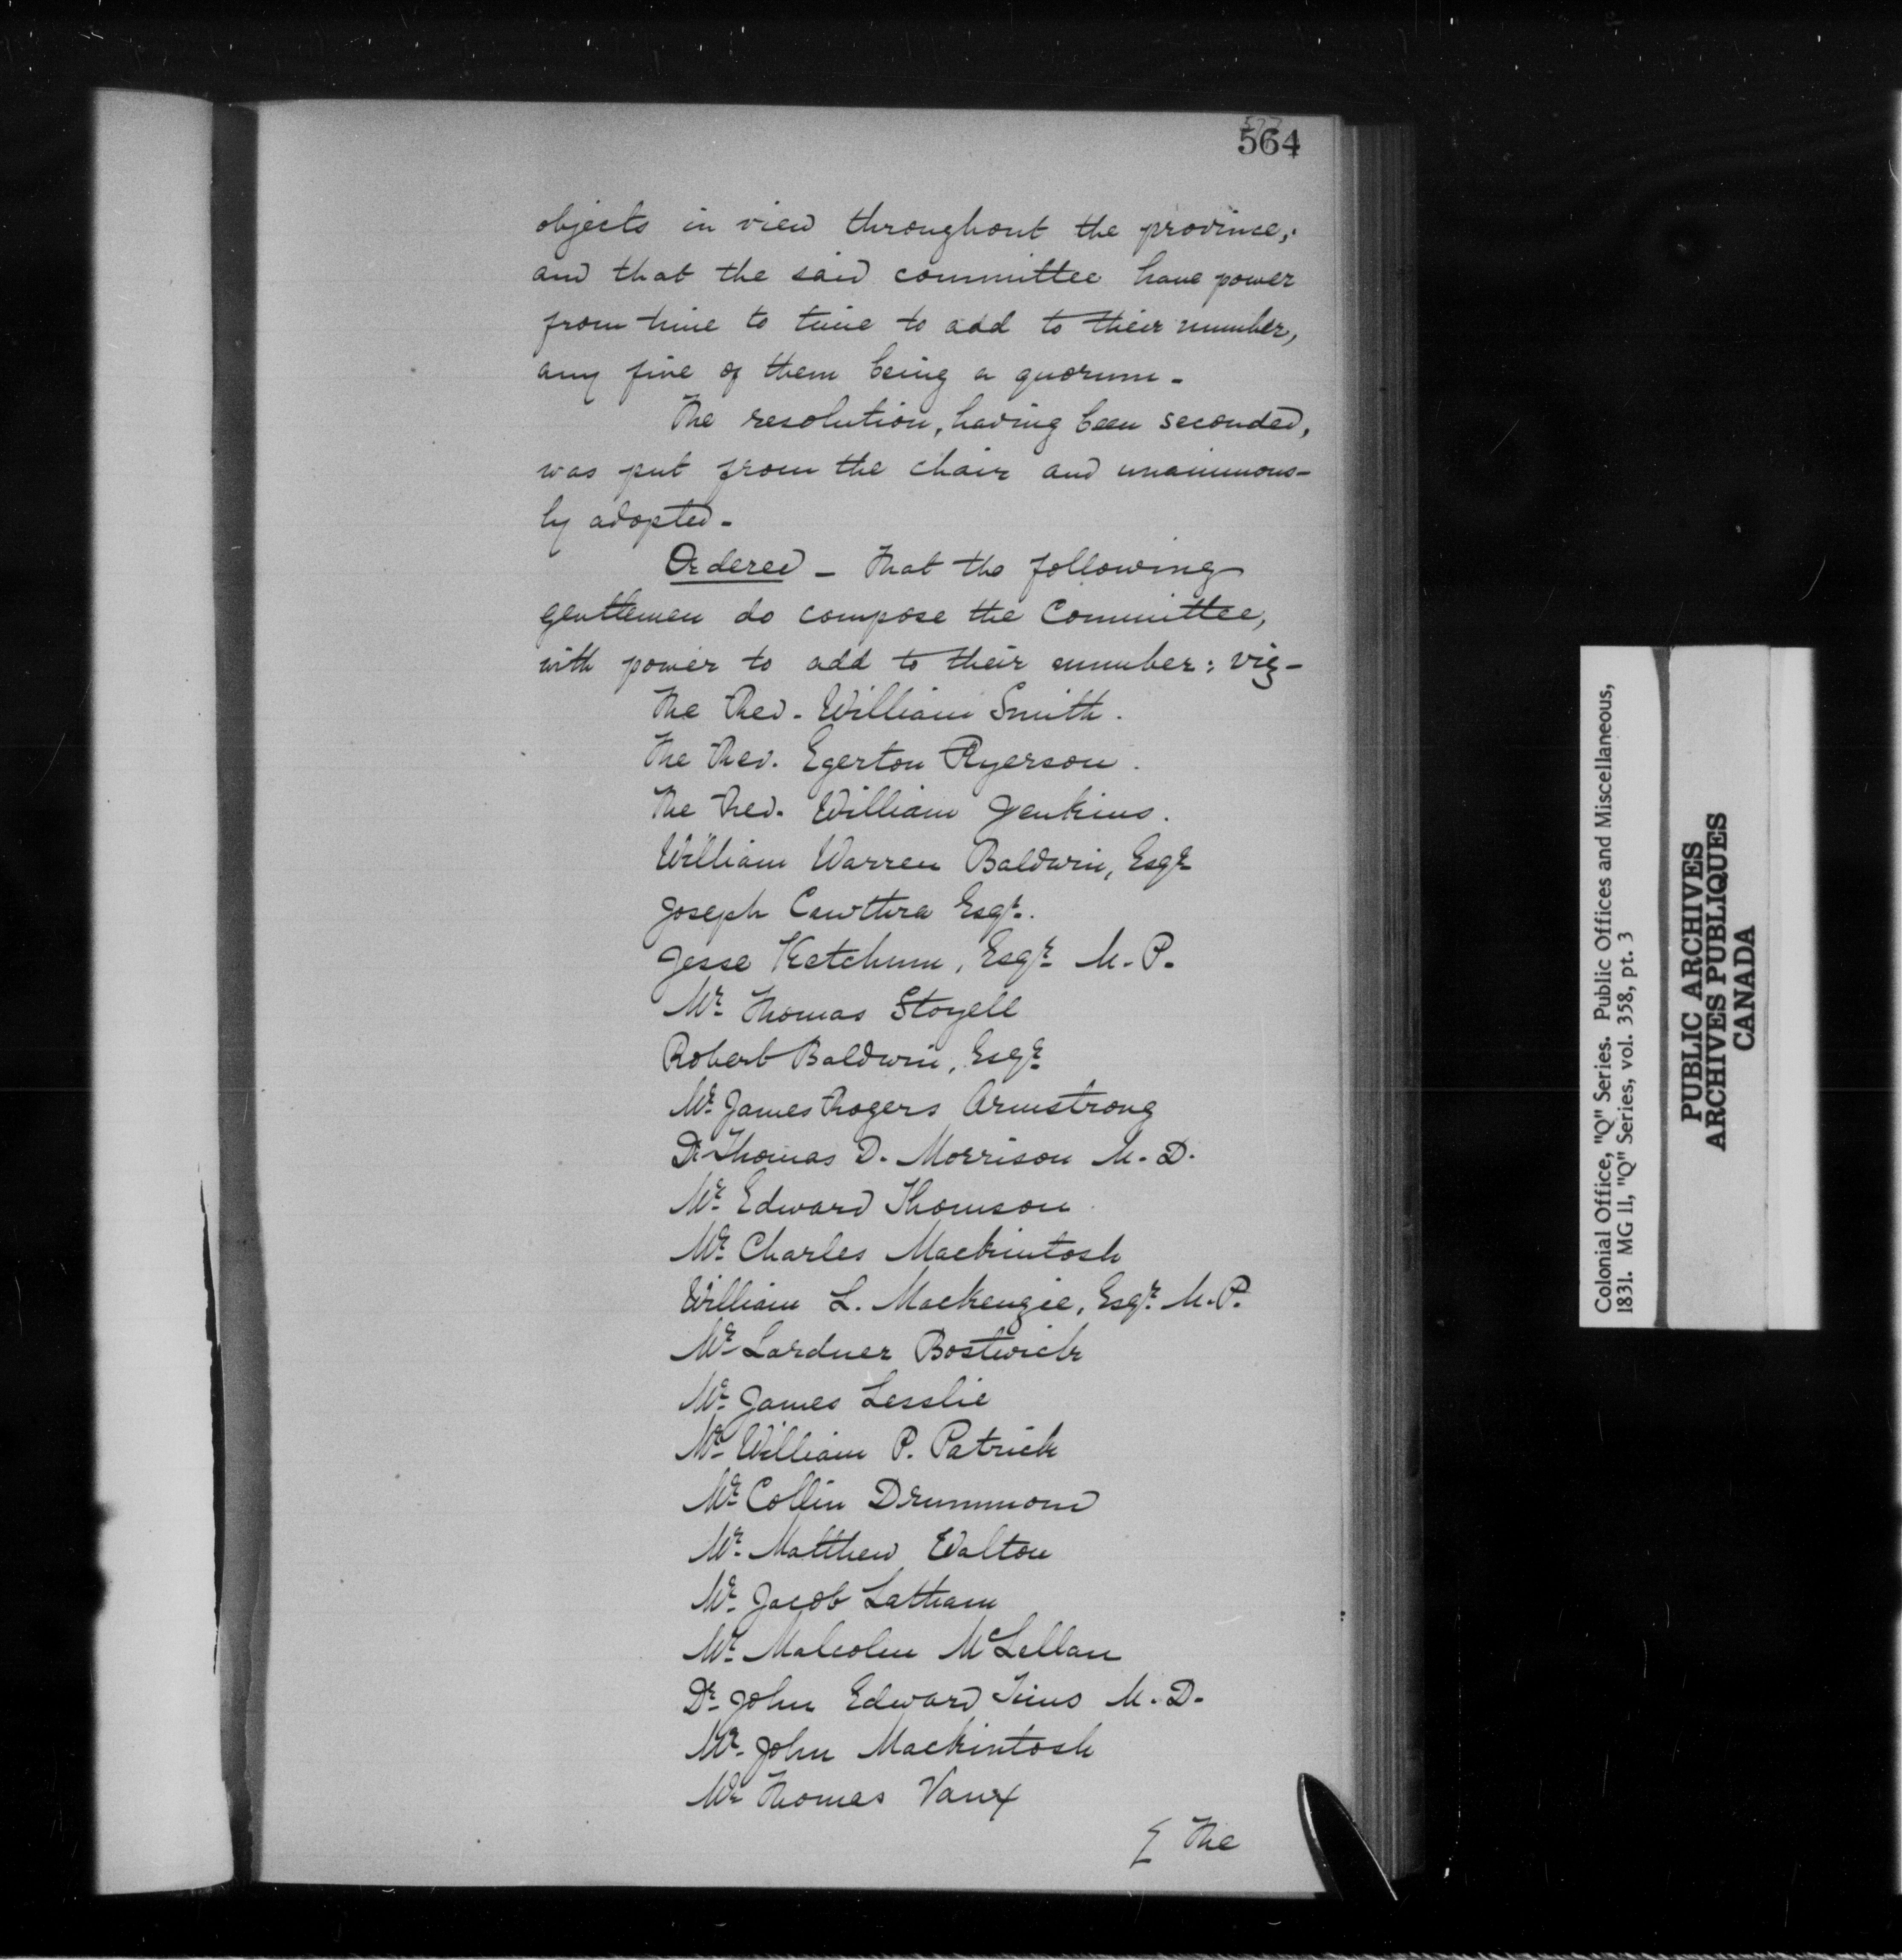 564
objects in view throughout the province,
and that the said committee have power
from time to time to add to their number,
any five of them being a quorum -
The resolution, having been seconded,
was put from the chair and unanimous-
ly adopted -
Ordered - That the following
gentlemen do compose the Committee,
with power to add to their number: viz -
The Rev. William Smith.
The Rev. Egerton Ryerson.
The Rev. William Jenkins.
William Warren Baldwin, Esqr
Joseph Cawthra Esqr.
Jesse Ketchum, Esqr M.P.
Mr Thomas Stoyell
Robert Baldwin, Esqr
Mr James Rogers Armstrong
Dr Thomas D. Morrison M.D.
Mr Edward Thomson
Mr Charles Mackintosh
William L. Mackenzie, Esqr M.P.
Mr Lardner Bostwick
Mr James Lesslie
Mr William P. Patrick
Mr Collin Drummond
Mr Matthew Walton
Mr Jacob Latham
Mr Malcolm McLellan
Dr John Edward Tims M.D.
Mr John Mackintosh
Mr Thomas Vaux
The
Colonial Office, "Q" Series. Public Offices and Miscellaneous,
1831. MG 11, "Q" Series, vol. 358, pt. 3
PUBLIC ARCHIVES
ARCHIVES PUBLIQUES
CANADA